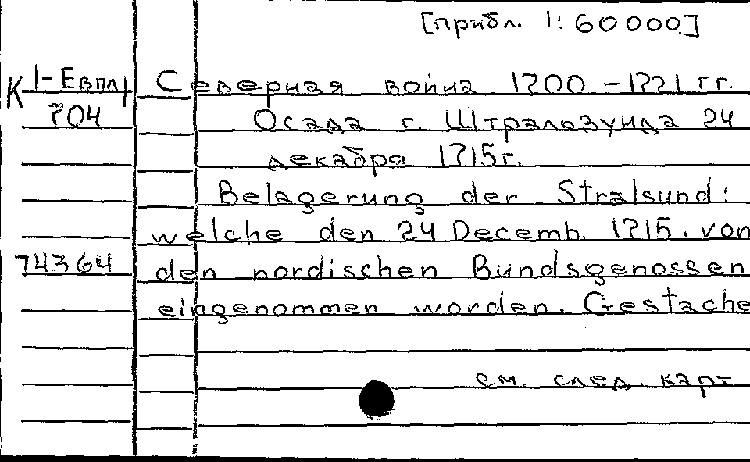 [прибл. 1:60000]
К 1-Евпл
704
Северная война 1700-1721 гг.
Осада г. Штральзунда 24
декабря 1715г.
Belagerung der Stralsund:
welche den 24 Decemb. 1715. von
74364
den nordischen Bundsgenossen
eingenommen worden. Gestache
см. след. карт